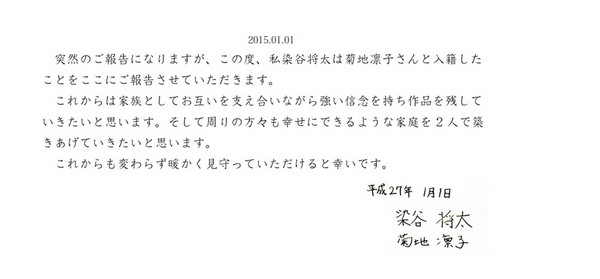 2015.01.01
突然のご報告になりますが、この度、私染谷将太は菊地凛子さんと入籍した
ことをここにご報告させていただきます。
これからは家族としてお互いを支え合いながら強い信念を持ち作品を残して
いきたいと思います。そして周りの方々も幸せにできるような家庭を２人で築
きあげていきたいと思います。
これからも変わらず暖かく見守っていただけると幸いです。
平成27年 1月1日
染谷 将太
菊地 凛子